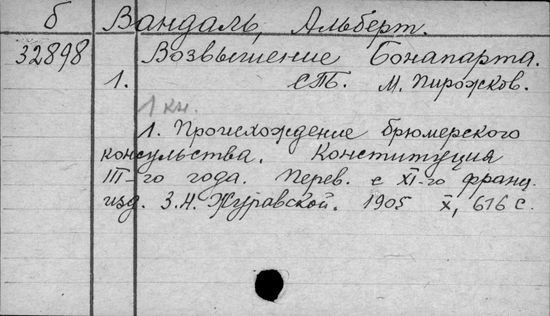 б Вандаль, Альберт.
32898 Возвышение Бонапарта.
1. СПБ. М. Пирожков.
1 кн.
1. Происхождение брюмерского
консульства. Конституция
III-го года. Перев. с XI-го франц.
изд. З.Н. Журавской. 1905 X, 616 с.